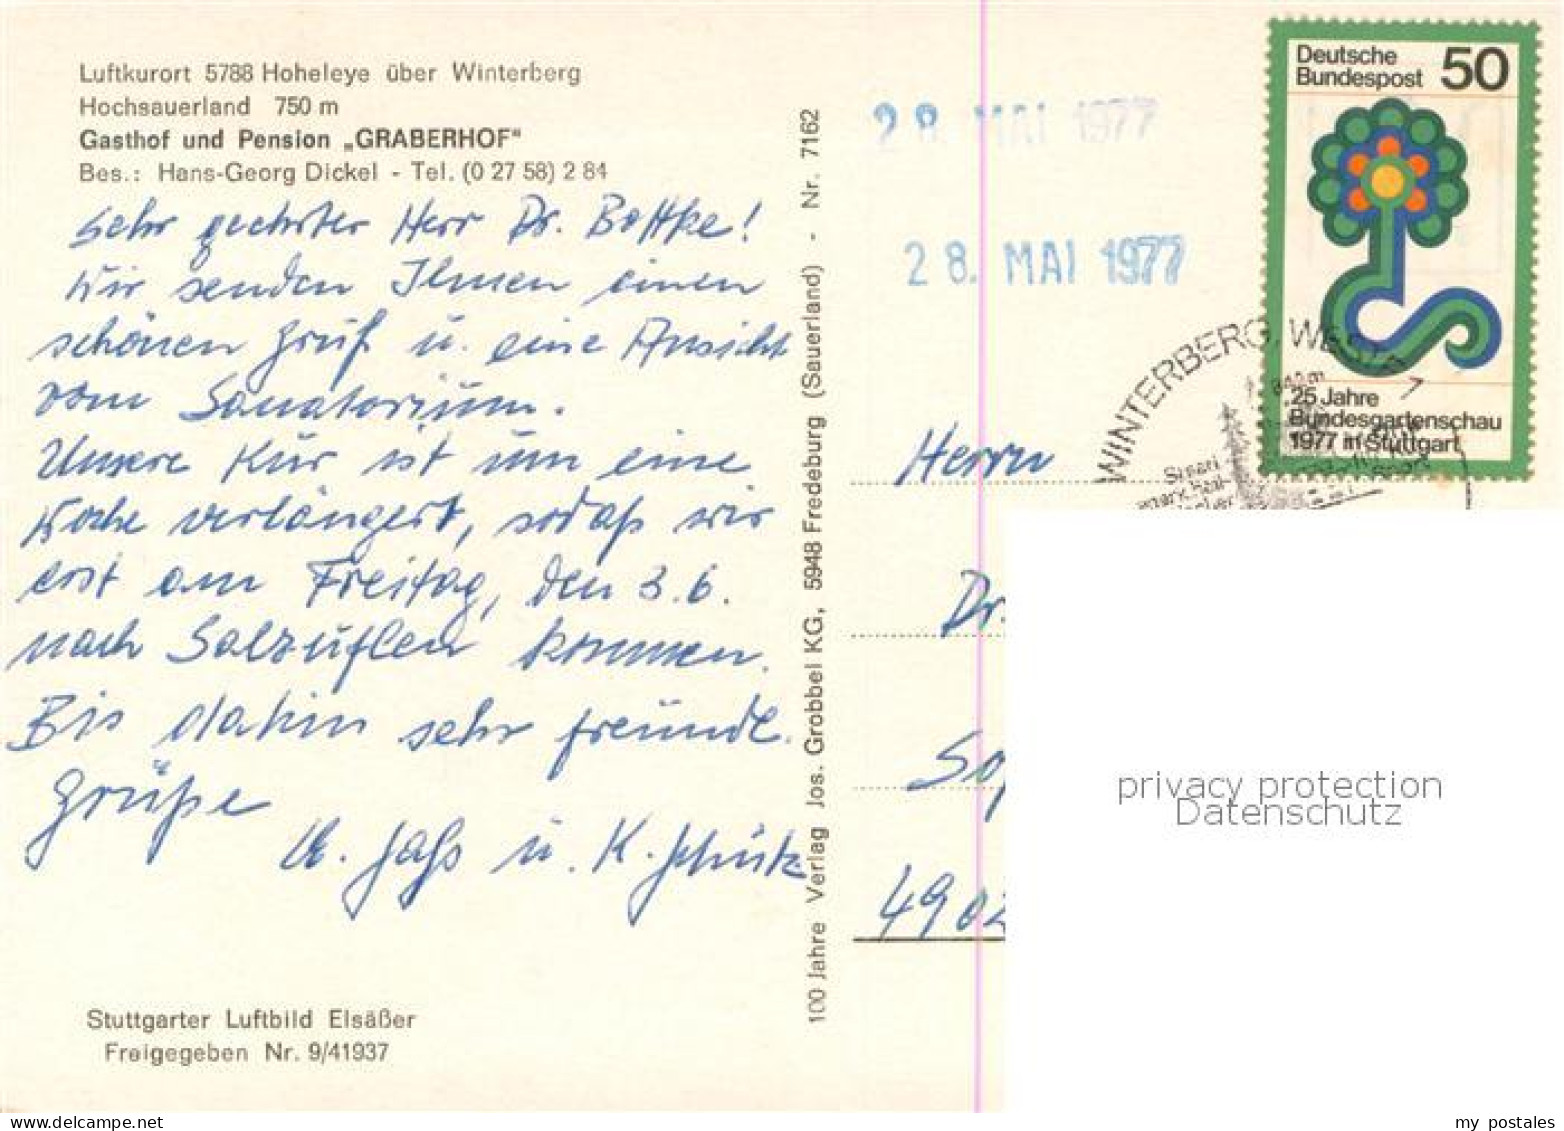 Luftkurort 5788 Hoheleye über Winterberg
Hochsauerland 750 m
Gasthof und Pension „GRABERHOF"
Bes.: Hans-Georg Dickel - Tel. (0 27 58) 2 84
Sehr geehrter Herr Dr. Bottke!
Wir senden Ihnen einen
schönen Gruß u. eine Ansicht
vom Sanatorium.
Unsere Kur ist um eine
Woche verlängert, sodaß wir
erst am Freitag, den 3.6.
nach Salzuflen kommen.
Bis dahin sehr freundl.
Grüße
u. K. Schütz
Stuttgarter Luftbild Elsäßer
Freigegeben Nr. 9/41937
100 Jahre Verlag Jos. Grobbel KG, 5948 Fredeburg (Sauerland) - Nr. 7162
28. MAI 1977
28. MAI 1977
Deutsche
Bundespost 50
25 Jahre
Bundesgartenschau
1977 in Stuttgart
WINTERBERG, WESTF
Herrn
Dr.
4902
privacy protection
Datenschutz
delcampe.net
my_postales